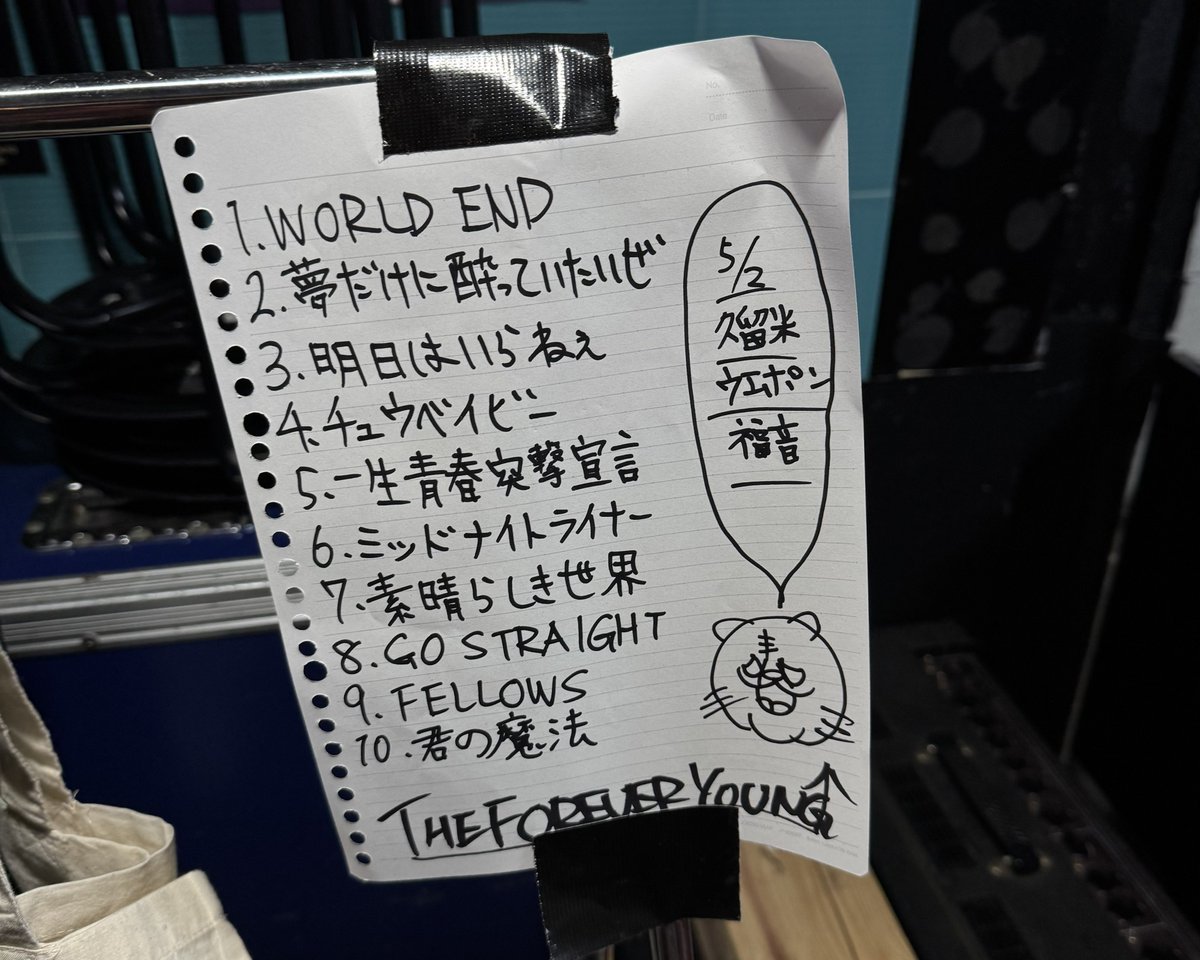 No.
Date
1. WORLD END
2. 夢だけに酔っていたいぜ
3. 明日はいらねぇ
4. チュウベイビー
5. 一生青春突撃宣言
6. ミッドナイトライナー
7. 素晴らしき世界
8. GO STRAIGHT
9. FELLOWS
10. 君の魔法
5/2
久留米
ウエポン
福音
THE FOREVER YOUNG